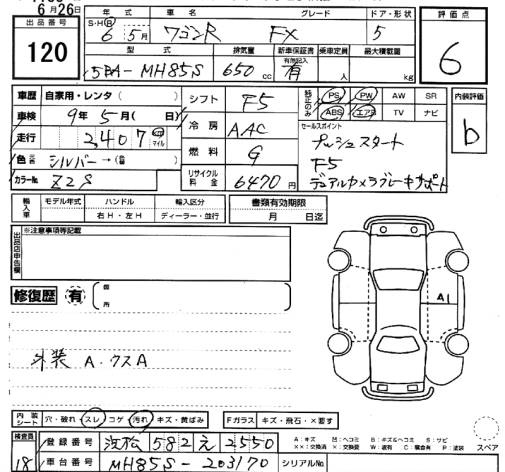 6月26日
出品番号 120
年式 S・H・R 6年5月
車名 ワゴンR
グレード FX
ドア・形状 5
評価点 6
型式 5BA-MH85S
排気量 650cc
新車保証書 有無記入 有
乗車定員 人
最大積載量 kg
車歴 自家用・レンタ( )
車検 9年5月( 日)
走行 2,407 マイル
色 シルバー→( )
カラーNo. Z2S
シフト F5
冷房 AAC
燃料 G
リサイクル料金 6470円
純正のみ PS PW AW SR
ABS エアB TV ナビ
内装評価 b
セールスポイント
プッシュスタート
F5
デュアルカメラブレーキサポート
輸入車 モデル年式 ハンドル 右H・左H 輸入区分 ディーラー・並行
書類有効期限 月 日迄
出品店申告欄 ※注意事項等記載
修復歴 有 箇所
A1
外装 A.クスA
内装シート 穴・破れ スレ コゲ 汚れ キズ・黄ばみ
Fガラス キズ・飛石・×要す
検査員 18
登録番号 浜松 582 え 2550
車台番号 MH85S-203170
シリアルNo.
A:キズ U:ヘコミ B:キズ&ヘコミ S:サビ
××:交換済 ×:要交換 W:波有 C:腐食有 P:塗装
スペア